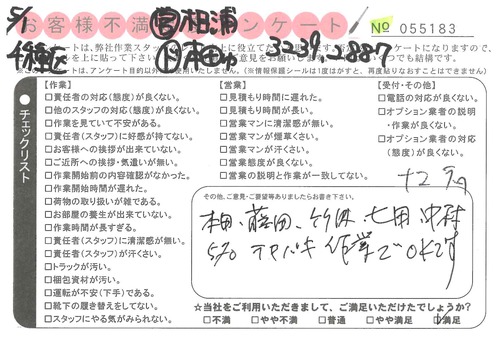 5/1
お客様不満 ンケート
営 相浦
No 055183
3239-2887
トは、弊社作業スタッフ 上に役立て
上に貼って下さい。 意見をお願いします いつでも結構です。
は、アンケート目的以外 使用いたしません。(※情報保護シールは1度はがすと、再度貼りなおすことはできません)
チェックリスト
【作業】
□責任者の対応(態度)が良くない。
□他のスタッフの対応(態度)が良くない。
□作業を見ていて不安がある。
□責任者(スタッフ)に好感が持てない。
□お客様への挨拶が出来ていない。
□ご近所への挨拶・気遣いが無い。
□作業開始前の内容確認がなかった。
□作業開始時間が遅れた。
□荷物の取り扱いが雑である。
□お部屋の養生が出来ていない。
□作業時間が長すぎる。
□責任者(スタッフ)に清潔感が無い。
□責任者(スタッフ)が汗くさい。
□トラックが汚い。
□梱包資材が汚い。
□運転が不安(下手)である。
□靴下の履き替えをしてない。
□スタッフにやる気がみられない。
【営業】
□見積もり時間に遅れた。
□見積もり時間が長い。
□営業マンに清潔感が無い。
□営業マンが煙草くさい。
□営業マンが汗くさい。
□営業態度が良くない。
□営業の説明と作業が一致してない。
【受付・その他】
□電話の対応が良くない。
□オプション業者の説明
・作業が良くない。
□オプション業者の対応
(態度)が良くない。
その他、ご意見・ご要望等ありましたらお書き下さい。
本田、藤田、竹内、七田、中村
テキパキ作業でOKです
☆当社をご利用いただきまして、ご満足いただけたでしょうか?
□不満 □やや不満 □普通 □やや満足 □満足